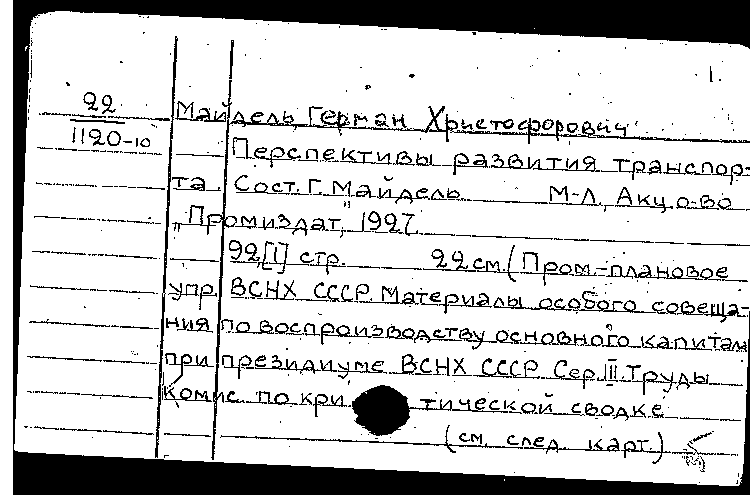 1.
22
1120-10
Майдель, Герман Христофорович
Перспективы развития транспор-
та. Сост. Г. Майдель М-Л, Акц. о-во
„Промиздат", 1927.
92,[1] стр. 22 см. (Пром.-плановое
упр. ВСНХ СССР. Материалы особого совеща-
ния по воспроизводству основного капитала
при президиуме ВСНХ СССР. Сер. II. Труды
Комис. по кри тической сводке
(см. след. карт.)